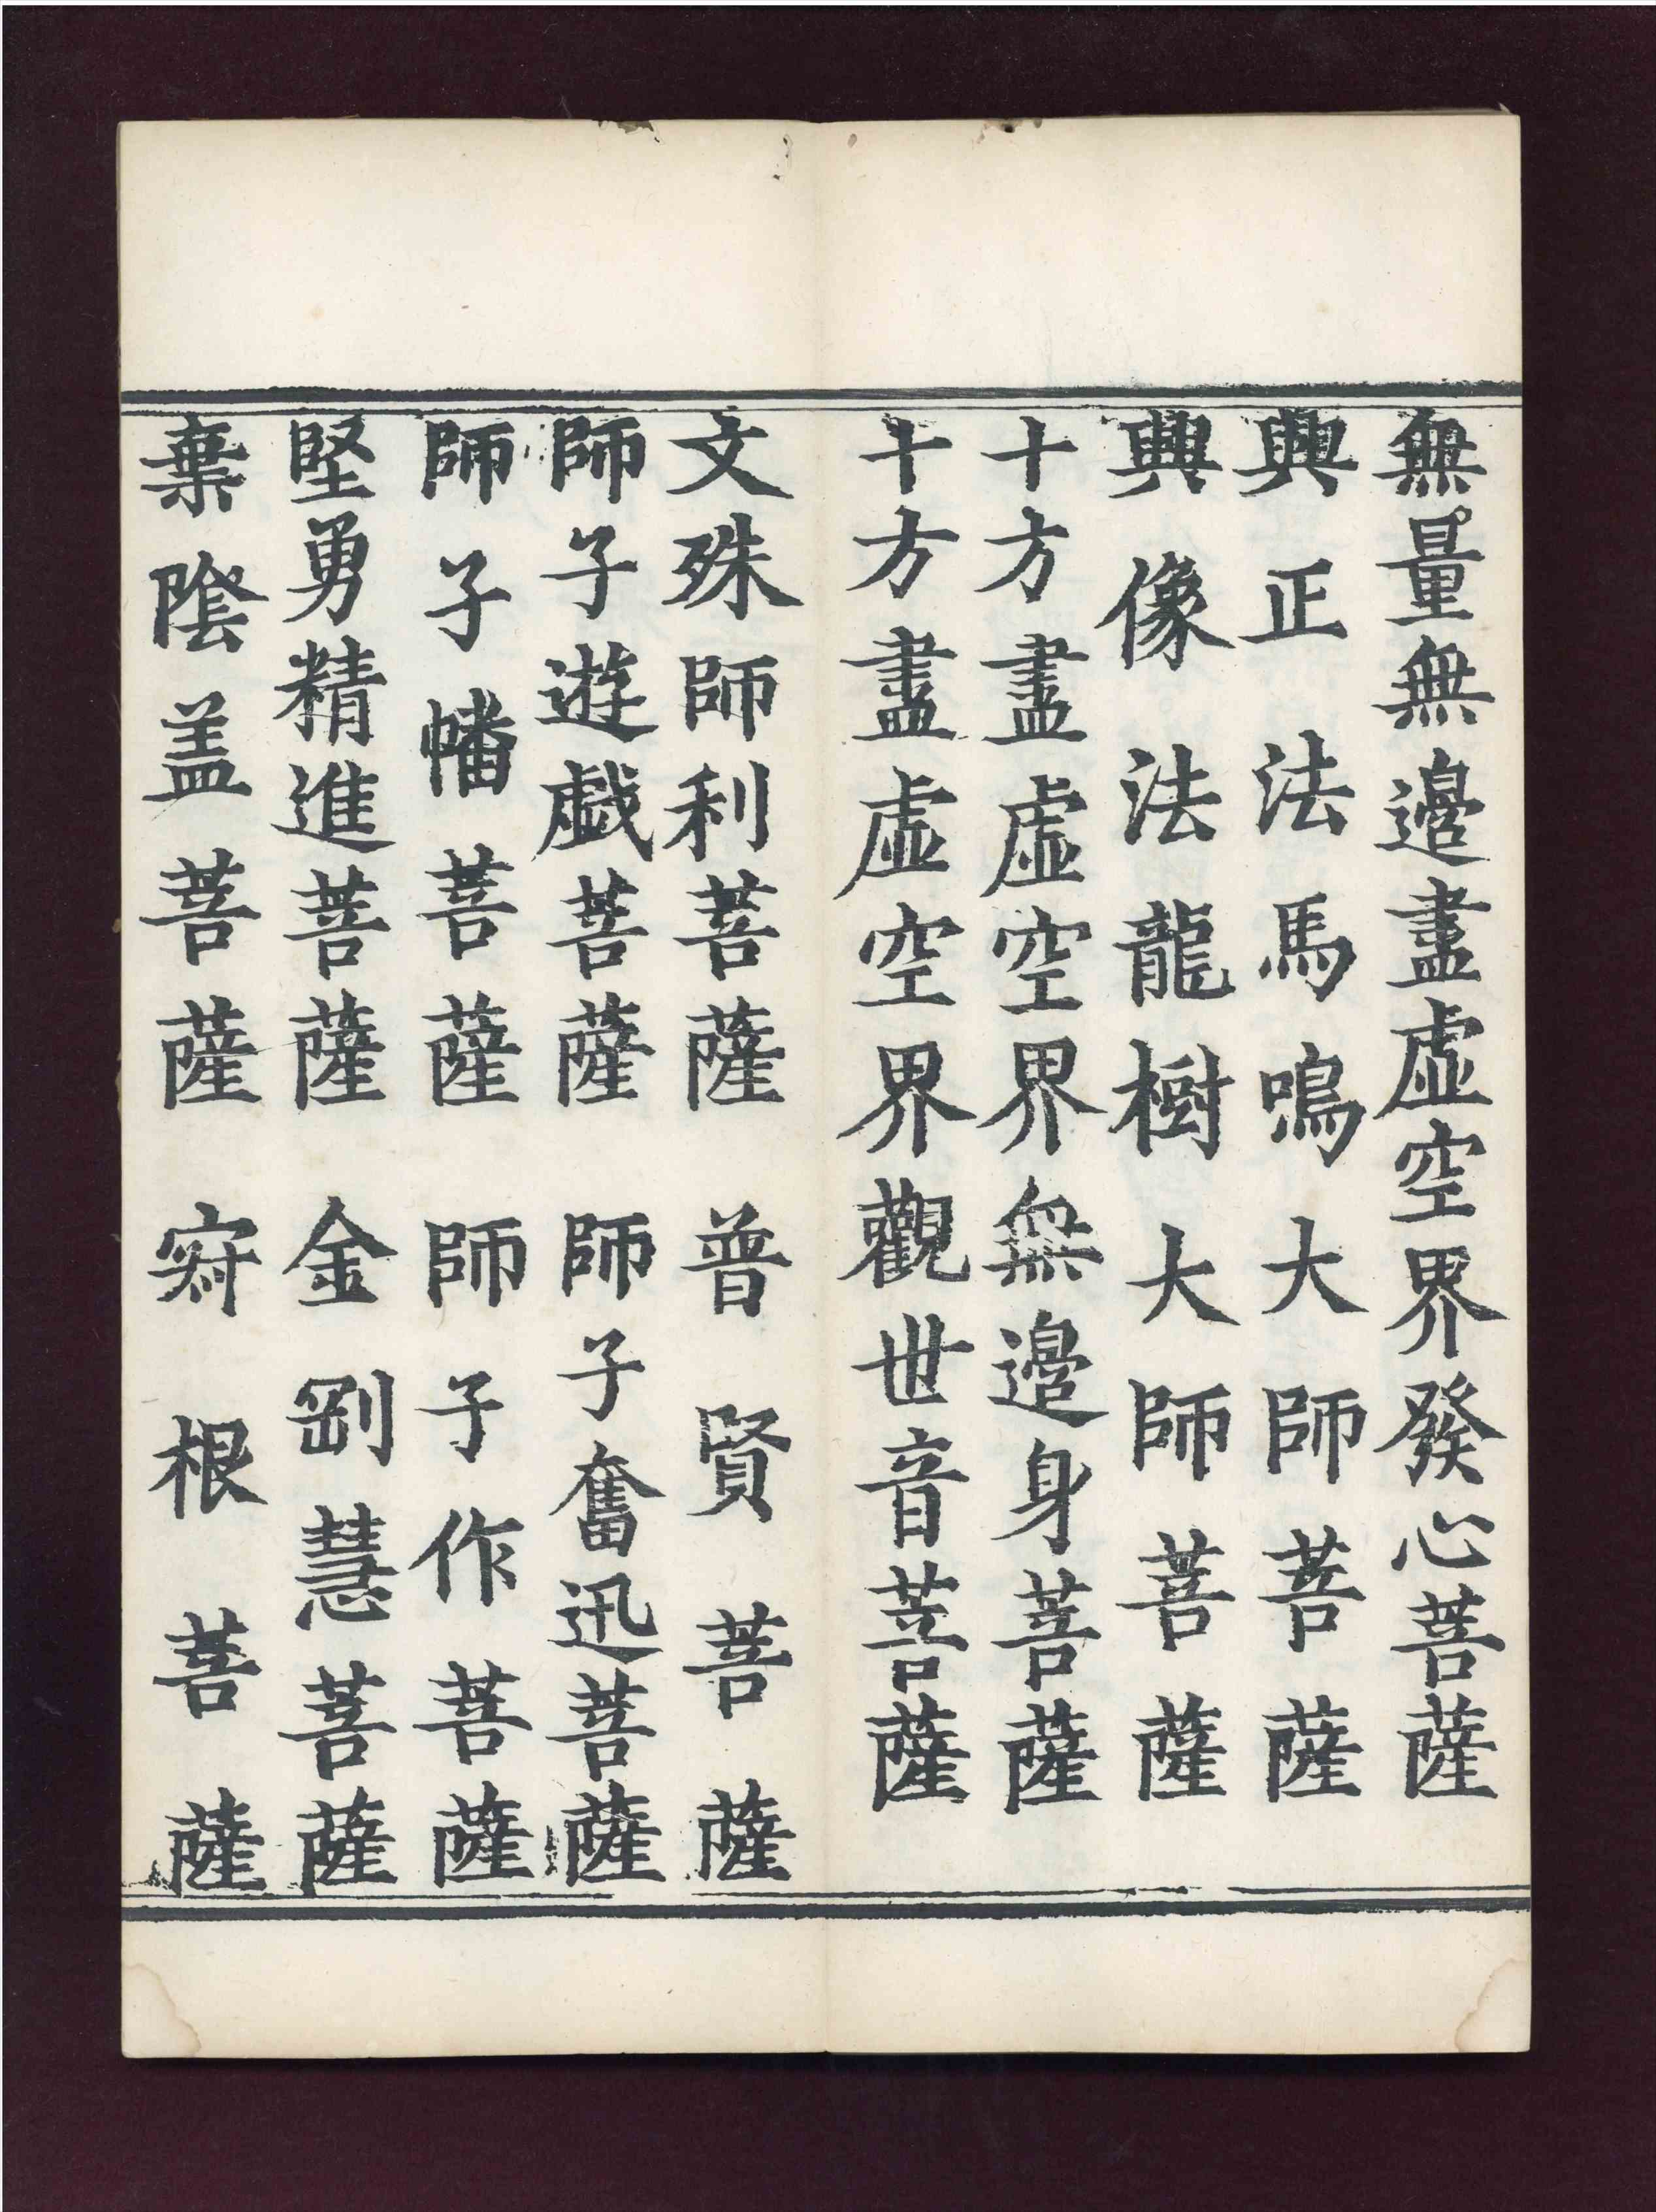 無量無邊盡虛空界發心菩薩
興正法馬鳴大師菩薩
興像法龍樹大師菩薩
十方盡虛空界無邊身菩薩
十方盡虛空界觀世音菩薩
文殊師利菩薩　普賢菩薩
師子遊戱菩薩　師子奮迅菩薩
師子幡菩薩　師子作菩薩
堅勇精進菩薩　金剛慧菩薩
棄陰盖菩薩　寂根菩薩